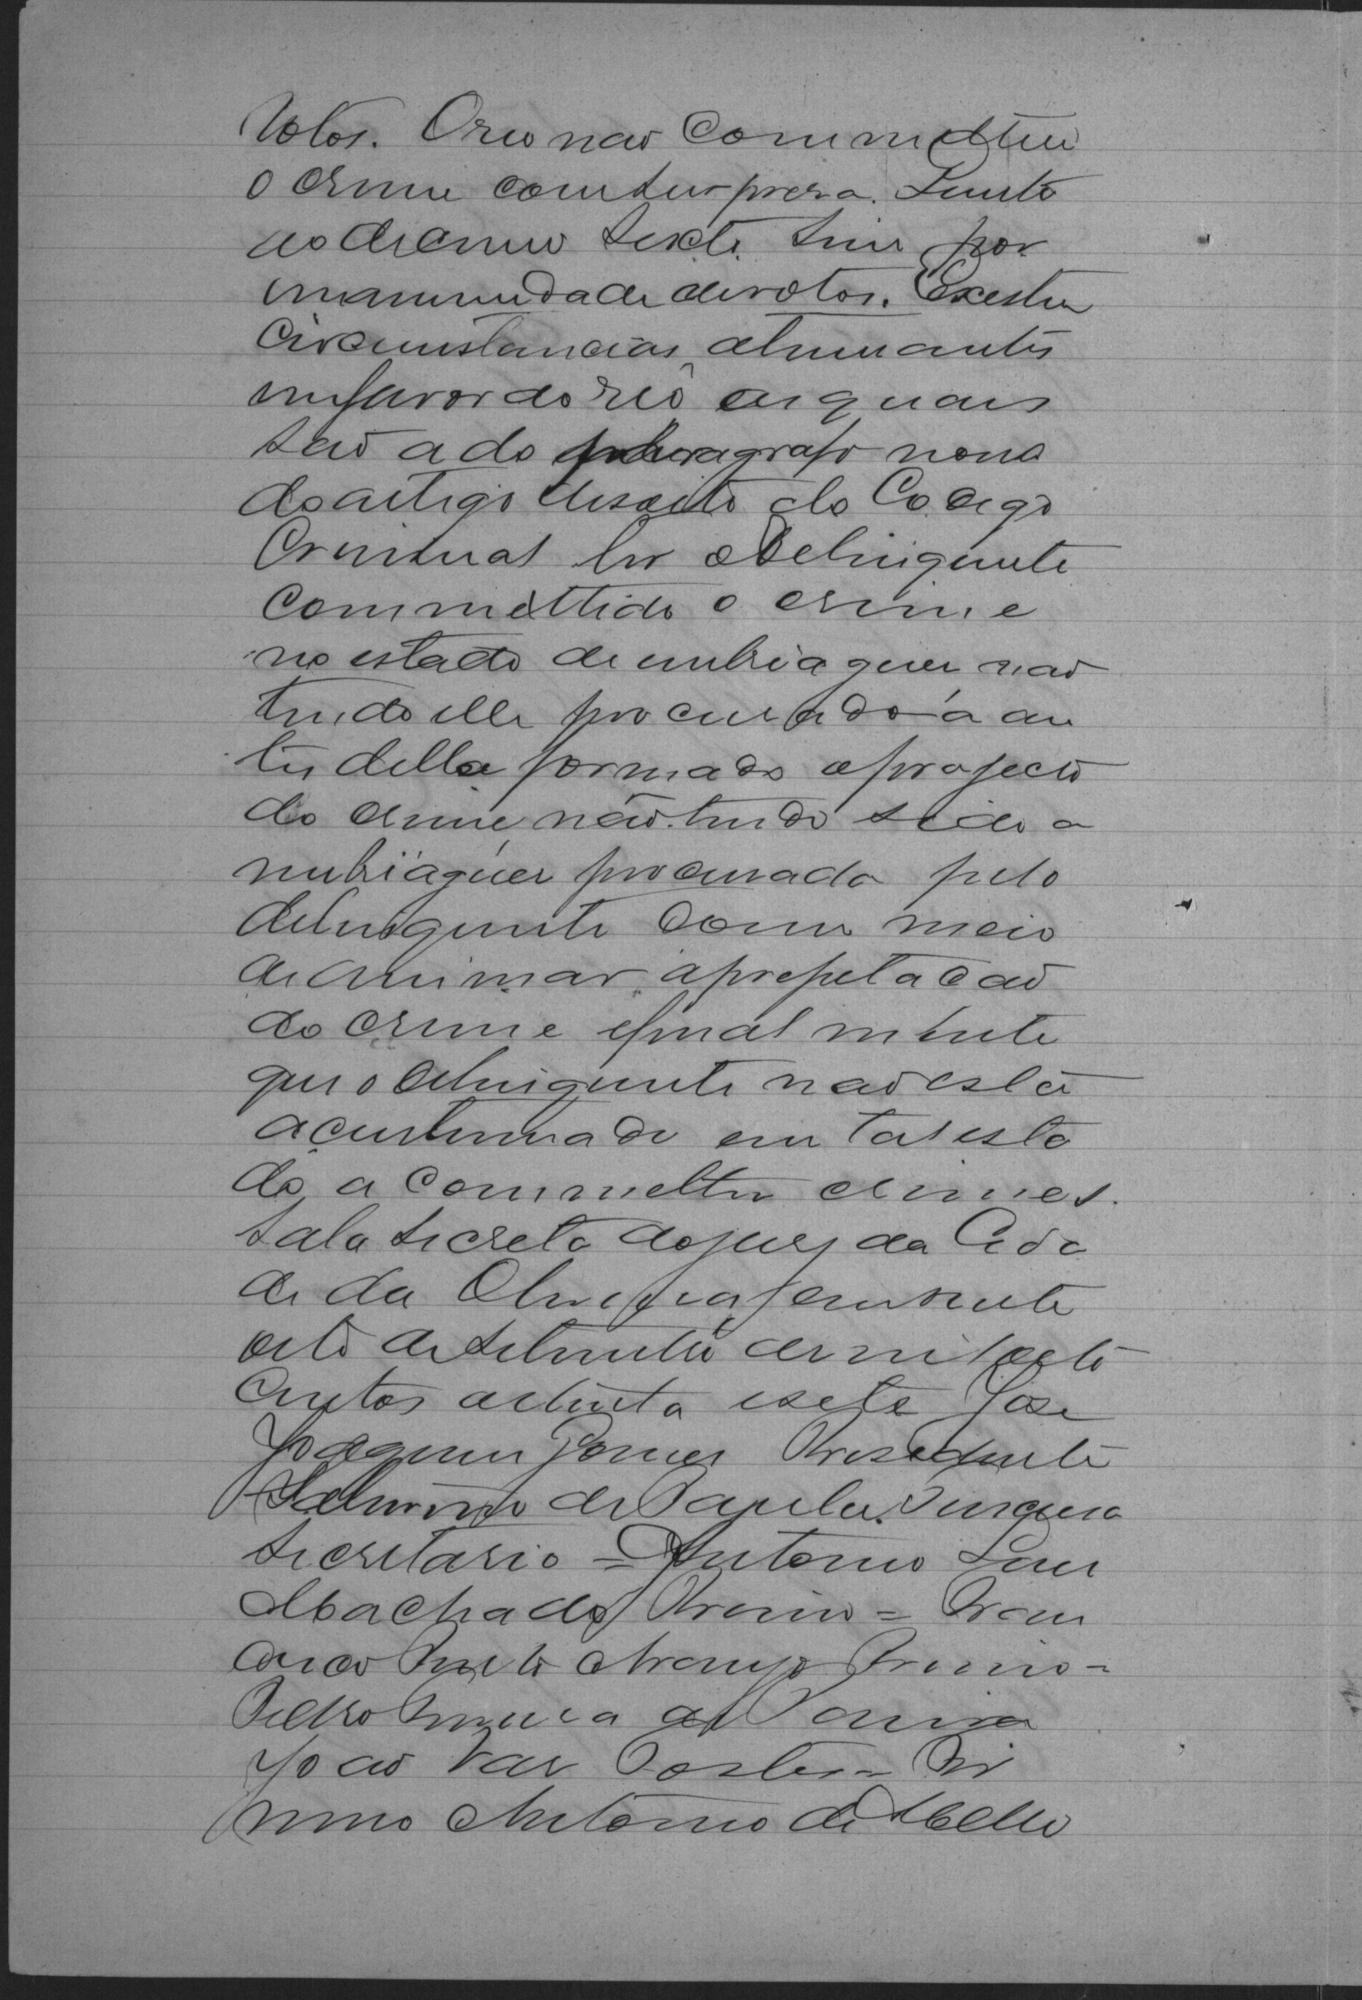 votos. O reo não commetteu
o crime com surpresa. Quanto
ao decimo sexto sim por
unanimidade de votos. Existem
circumstancias attenuantes
em favor do réo as quaes
são a do paragrafo nono
do artigo desoito do Codigo
Criminal ter o delinquente
commettido o crime
no estado de embriaguez não
tendo elle procurado á an
tes della formado o projecto
do crime não tendo sido a
embriaguez procurada pelo
delinquente como meio
de animar a prepetacão
do crime e finalmente
que o delinquente não está
acustumado em tal esta
do a commetter crimes.
Sala secreta do jury da Cida
de da Oliveira em vinte
oito de Setembro de mil oito
centos oitenta e sete José
Joaquim Gomes Presidente
Saturnino de Paula
Secretario = Antonio
Machado =
Araujo
Pedro de
João Vas =
Antonio de Mello